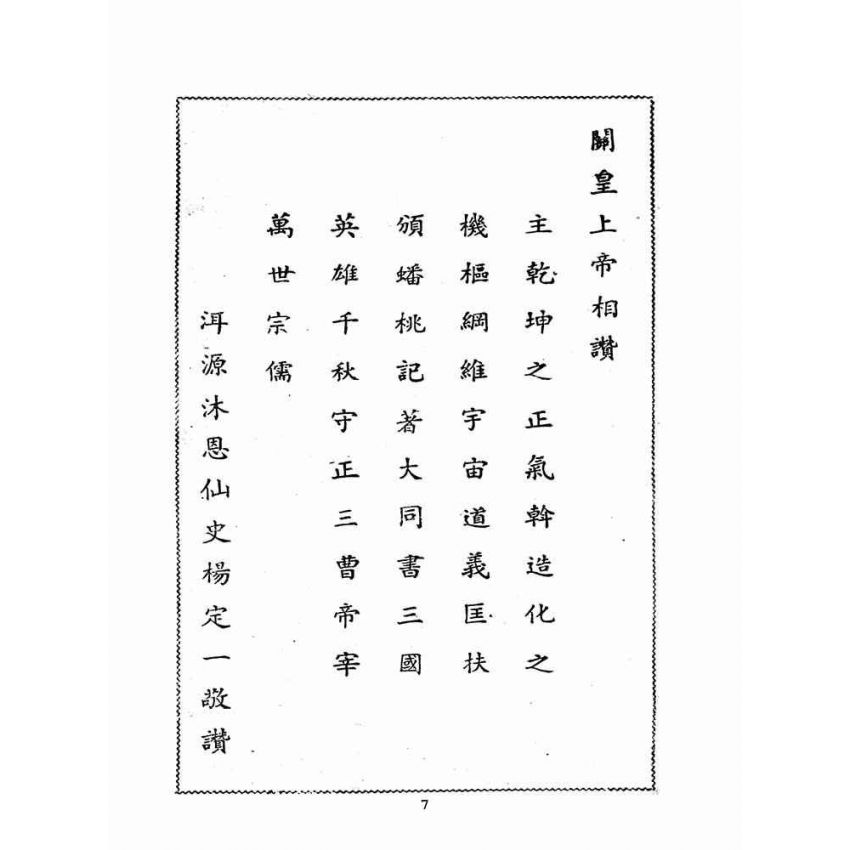 關皇上帝相讚
主乾坤之正氣斡造化之
機樞綱維宇宙道義匡扶
頒蟠桃記著大同書三國
英雄千秋守正三曹帝宰
萬世宗儒
洱源沐恩仙史楊定一敬讚
7